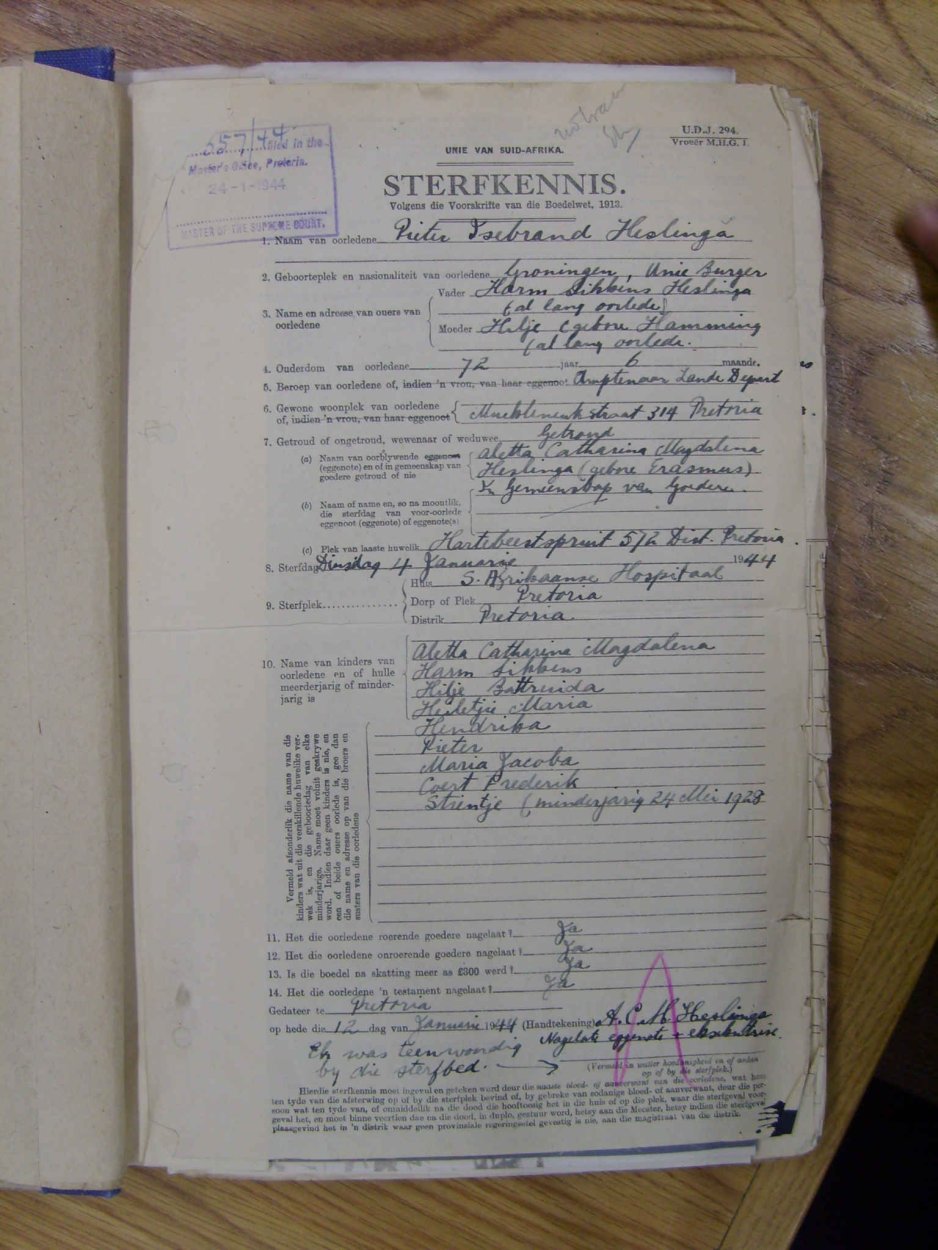 557/44
filed in the
Master's Office, Pretoria.
24-1-1944
MASTER OF THE SUPREME COURT.
U.D.J. 294.
Vroeër M.H.G. 1.
UNIE VAN SUID-AFRIKA.
STERFKENNIS.
Volgens die Voorskrifte van die Boedelwet, 1913.
1. Naam van oorledene Pieter Isebrand Heslinga
2. Geboorteplek en nasionaliteit van oorledene Groningen, Unie Burger
3. Name en adresse van ouers van oorledene
Vader Harm Sikkens Heslinga
(al lang oorlede)
Moeder Hilje (gebore Hamming
(al lang oorlede.
4. Ouderdom van oorledene 72 jaar 6 maande.
5. Beroep van oorledene of, indien 'n vrou, van haar eggenoot Amptenaar Lande Depart
6. Gewone woonplek van oorledene
of, indien 'n vrou, van haar eggenoot straat 314 Pretoria
7. Getroud of ongetroud, wewenaar of weduwee Getroud
(a) Naam van oorblywende eggenoot
(eggenote) en of in gemeenskap van
goedere getroud of nie
Aletta Catharina Magdalena
Heslinga (gebore Erasmus)
In Gemeenskap van Goedere.
(b) Naam of name en, so na moontlik,
die sterfdag van voor-oorlede
eggenoot (eggenote) of eggenote(s)
(c) Plek van laaste huwelik Hartebeestspruit 512 Dist. Pretoria.
8. Sterfdag Dinsdag 4 Januarie 1944
9. Sterfplek
Huis S. Afrikaanse Hospitaal
Dorp of Plek Pretoria
Distrik Pretoria
10. Name van kinders van
oorledene en of hulle
meerderjarig of minder-
jarig is
Aletta Catharina Magdalena
Harm Sikkens
Hilje Battruida
Hesletjie Maria
Hendrika
Pieter
Maria Jacoba
Coert Frederik
Strentje (minderjarig 24 Mei 1928
Vermeld afsonderlik die name van die
kinders wat uit die verskillende huwelike ver-
wek is, en die geboortedag van elke
minderjarige. Name moet voluit geskrywe
word. Indien daar geen kinders is nie, en
een of beide ouers oorlede is, gee dan
die name en adresse op van die broers en
susters van die oorledene
11. Het die oorledene roerende goedere nagelaat? Ja
12. Het die oorledene onroerende goedere nagelaat? Ja
13. Is die boedel na skatting meer as £300 werd? Ja
14. Het die oorledene 'n testament nagelaat? Ja
Gedateer te Pretoria
op hede die 12 dag van Januarie 1944 (Handtekening) A. C. M. Heslinga
Nagelate eggenote + eksekutrise.
Ek was teenwoordig
by die sterfbed.
(Vermeld in watter hoedanigheid en of anders
op of by die sterfplek.)
Hierdie sterfkennis moet ingevul en geteken word deur die naaste bloed- of aanverwant van die oorledene, wat hom
ten tyde van die afsterwing op of by die sterfplek bevind of, by gebreke van sodanige bloed- of aanverwant, deur die per-
soon wat ten tyde van, of onmiddellik na die dood die hooftoesig het in die huis of op die plek, waar die sterfgeval voor-
geval het, en moet binne veertien dae na die dood, in duplo, gestuur word, hetsy aan die Meester, hetsy indien die sterfgeval
plaasgevind het in 'n distrik waar geen provinsiale regeringsetel gevestig is nie, aan die magistraat van die distrik.